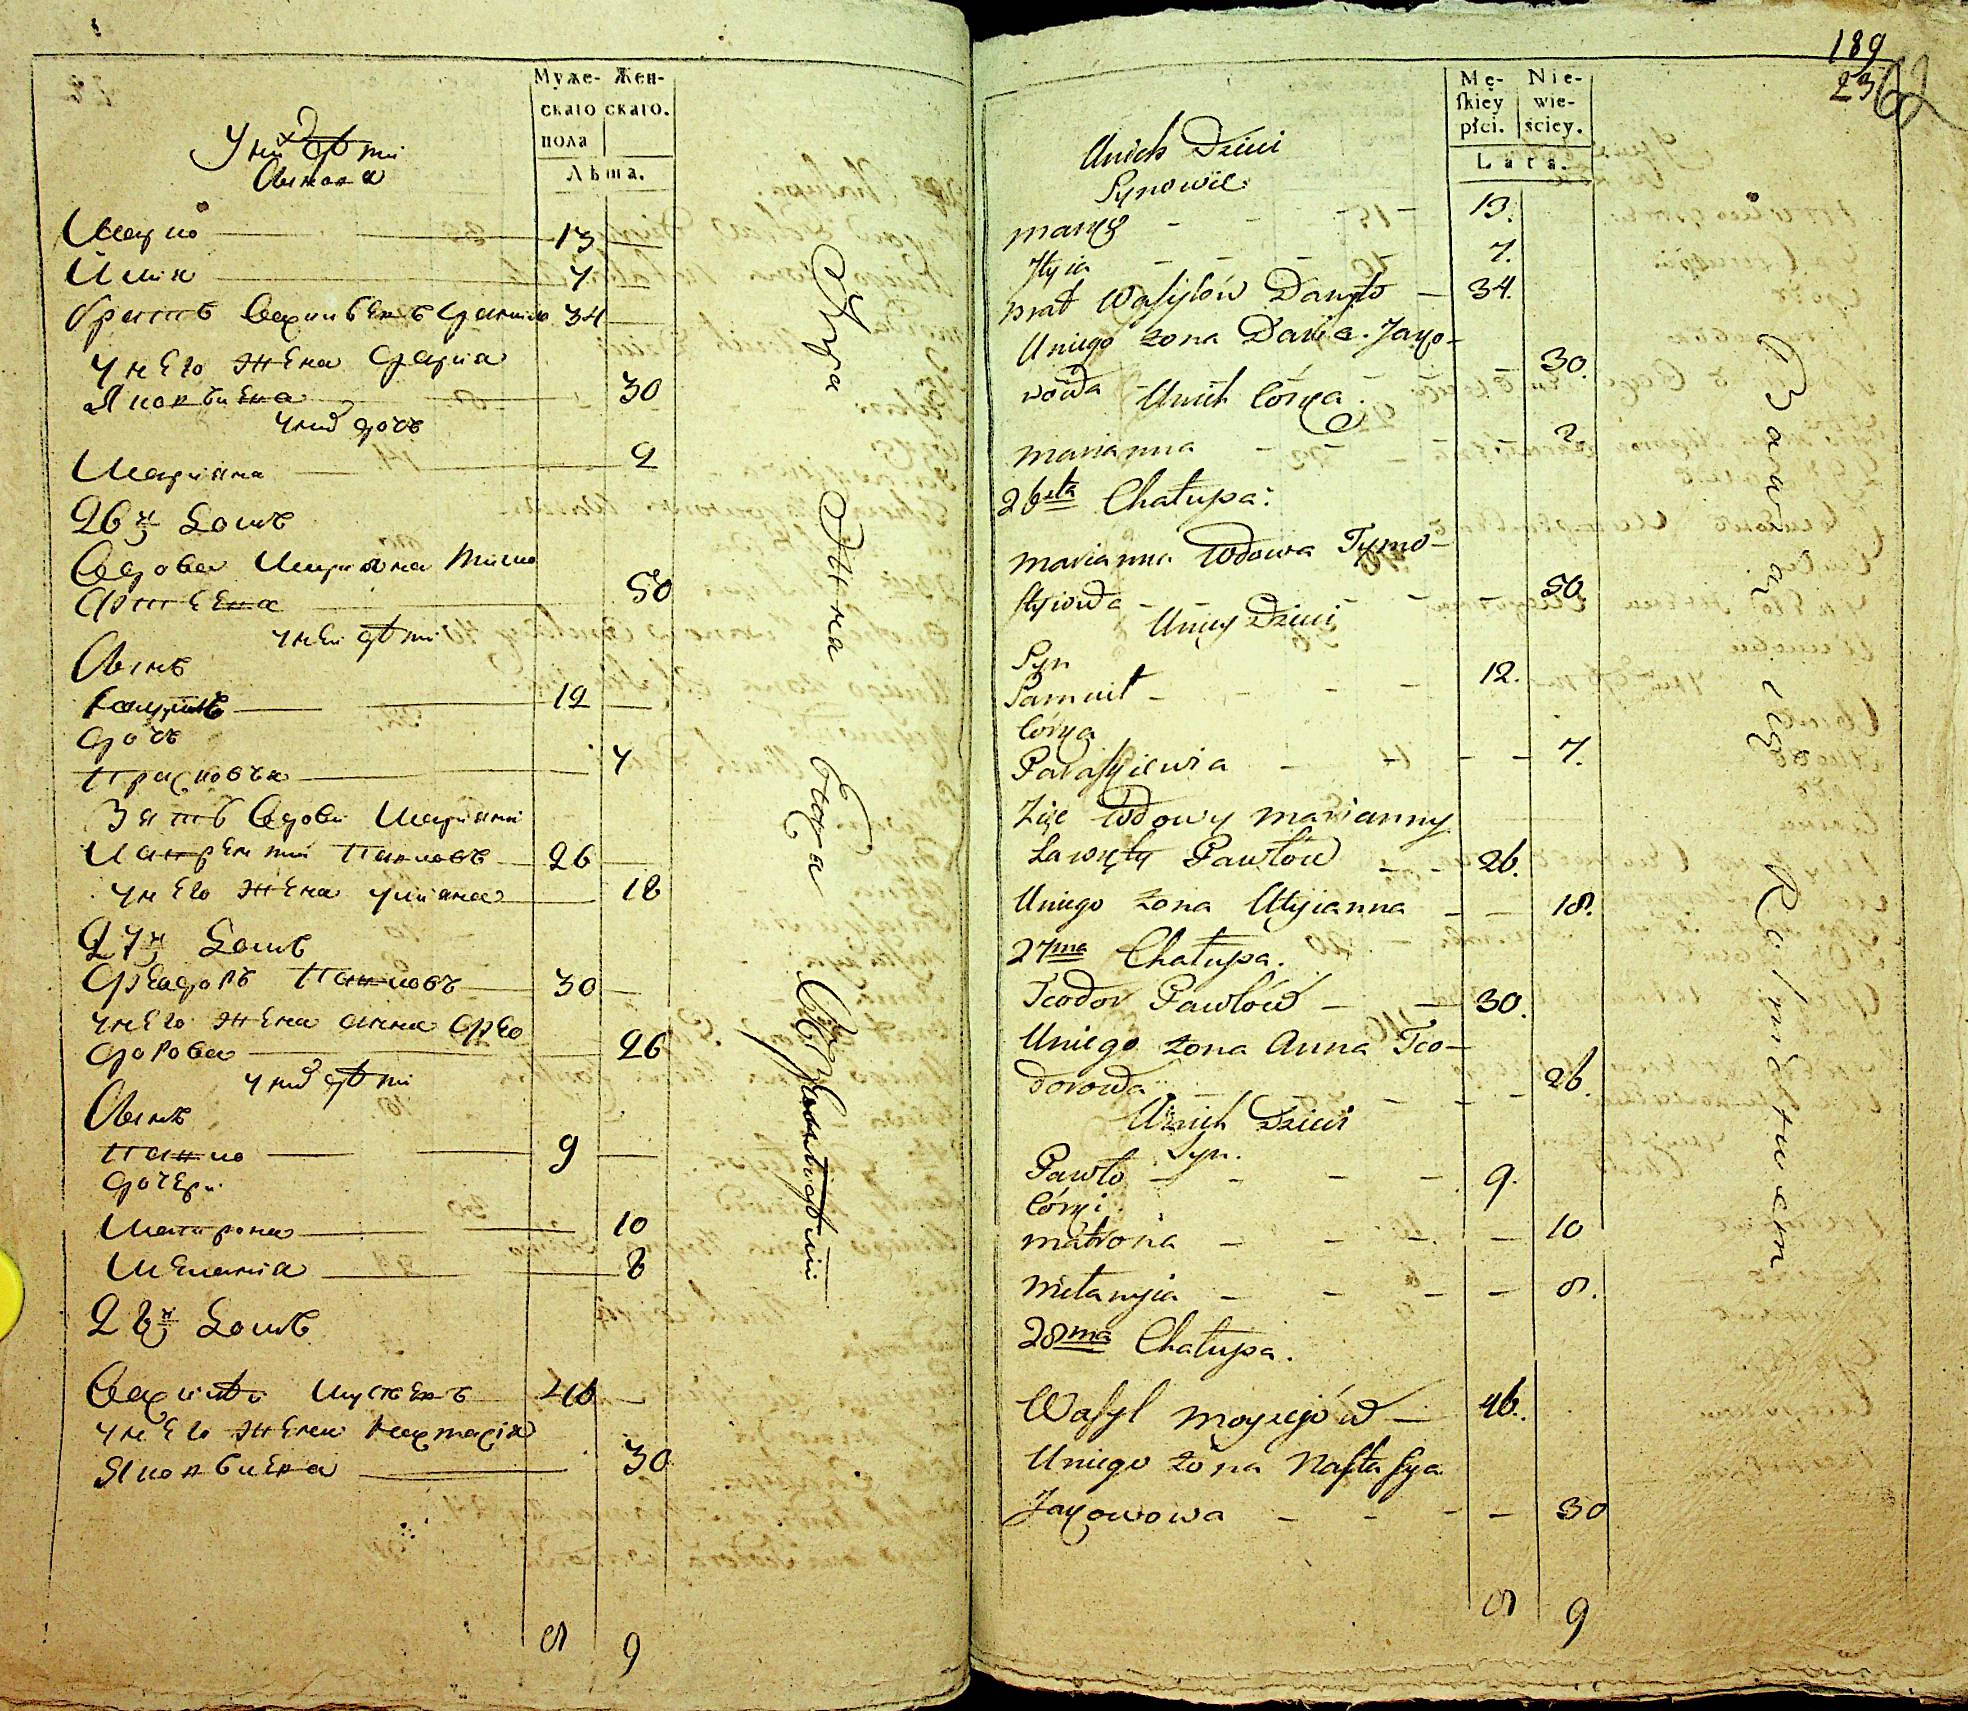 Муже- Жен-
скаго скаго.
пола
Лѣта.
У них дѣти
Сынове
Марко 13
Илия 7
братъ Василѣевъ Данило 34
у него жена Дария
Яковлева 30
у них дочь
Марияна 2
26я Хата
Вдова Марияна Тимо
фѣева 50
у неи дѣти
Сынъ
Самуилъ 12
дочь
Прасковья 7
Зять Вдови Марияни
Лаврентий Павловъ 26
у него жена Улияна 18
27я Хата
Феодоръ Павловъ 30
у него жена Анна Фео
дорова 26
у них дѣти
Сынъ
Павло 9
дочери
Матрона 10
Мелания 8
28я Хата
Василий Мусѣевъ 46
у него жена Настасия
Яковлева 30
8 9
189
23
62
Mę- Nie-
skiey wie-
płci. ściey.
Lata.
Unich Dzieci
Synowie
Marko 13.
Ilyia 7.
brat Wasylów Danyło 34.
Uniego żona Daria Jako-
wowa 30.
Unich Córka.
Marianna 2
26sta Chałupa.
Marianna Wdowa Tymo-
fiyiowa 50.
Uniey Dzieci
Syn
Samuił 12.
Córka
Paraskiewia 7.
Zięć Wdowy Marianny
Ławryty Pawłów 26.
Uniego żona Ulyianna 18.
27ma Chałupa.
Teodor Pawłów 30.
Uniego żona Anna Teo-
dorowa 26.
Unich Dzieci
Syn.
Pawło 9.
Córki
Matrona 10
Mełanyia 8.
28ma Chałupa.
Wasyl Moysejów 46.
Uniego żona Nastasya
Jakowowa 30
8 9